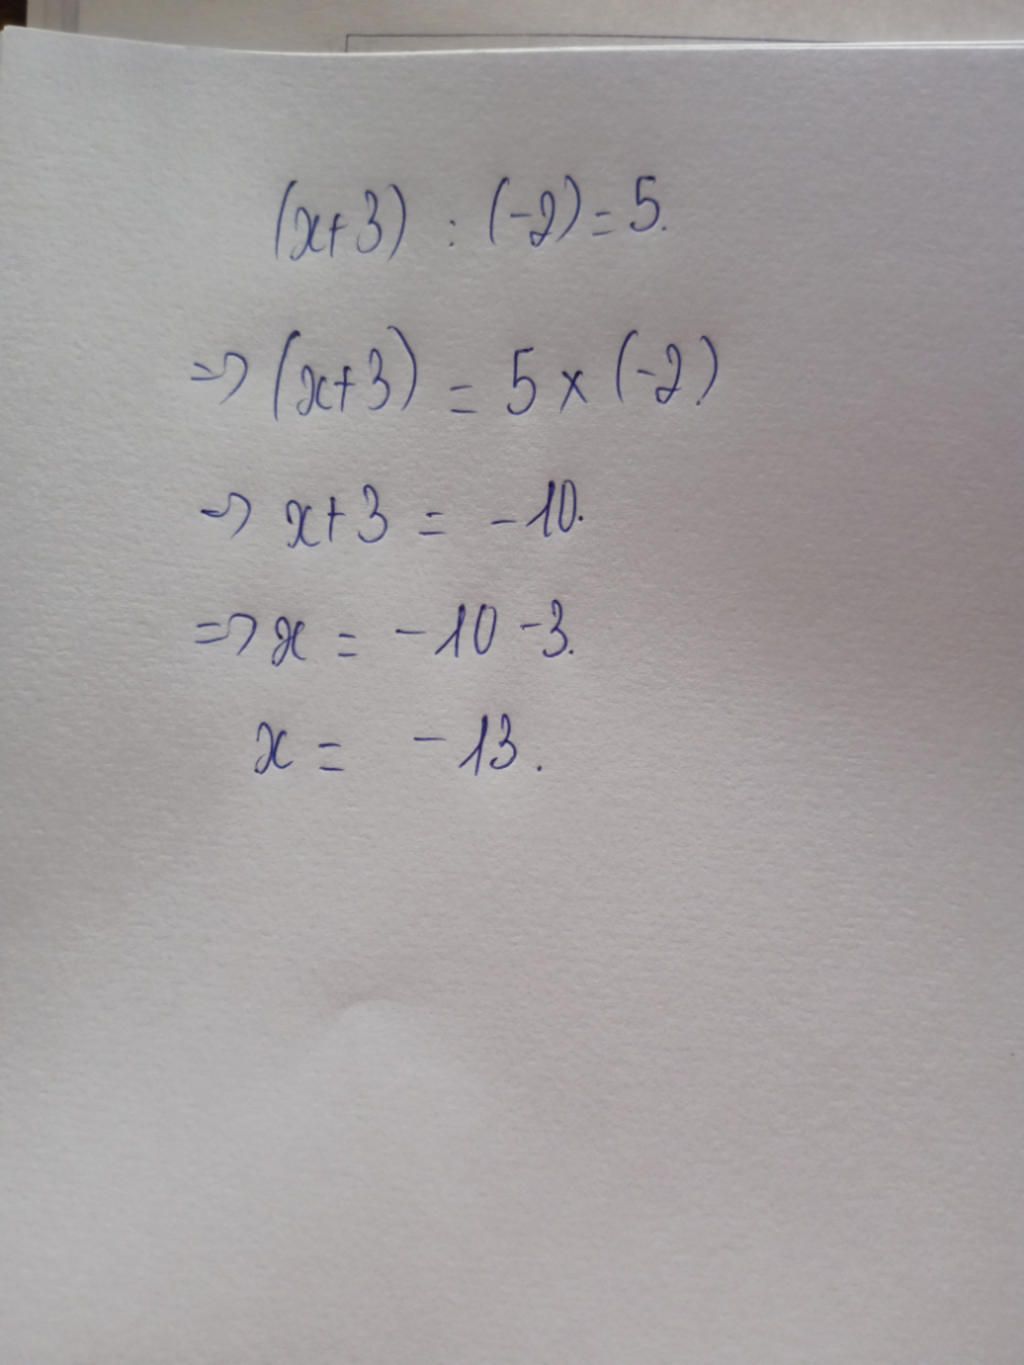 (x+3) : (-2) = 5.
=> (x+3) = 5 x (-2)
=> x+3 = -10.
=> x = -10 -3.
x = -13.